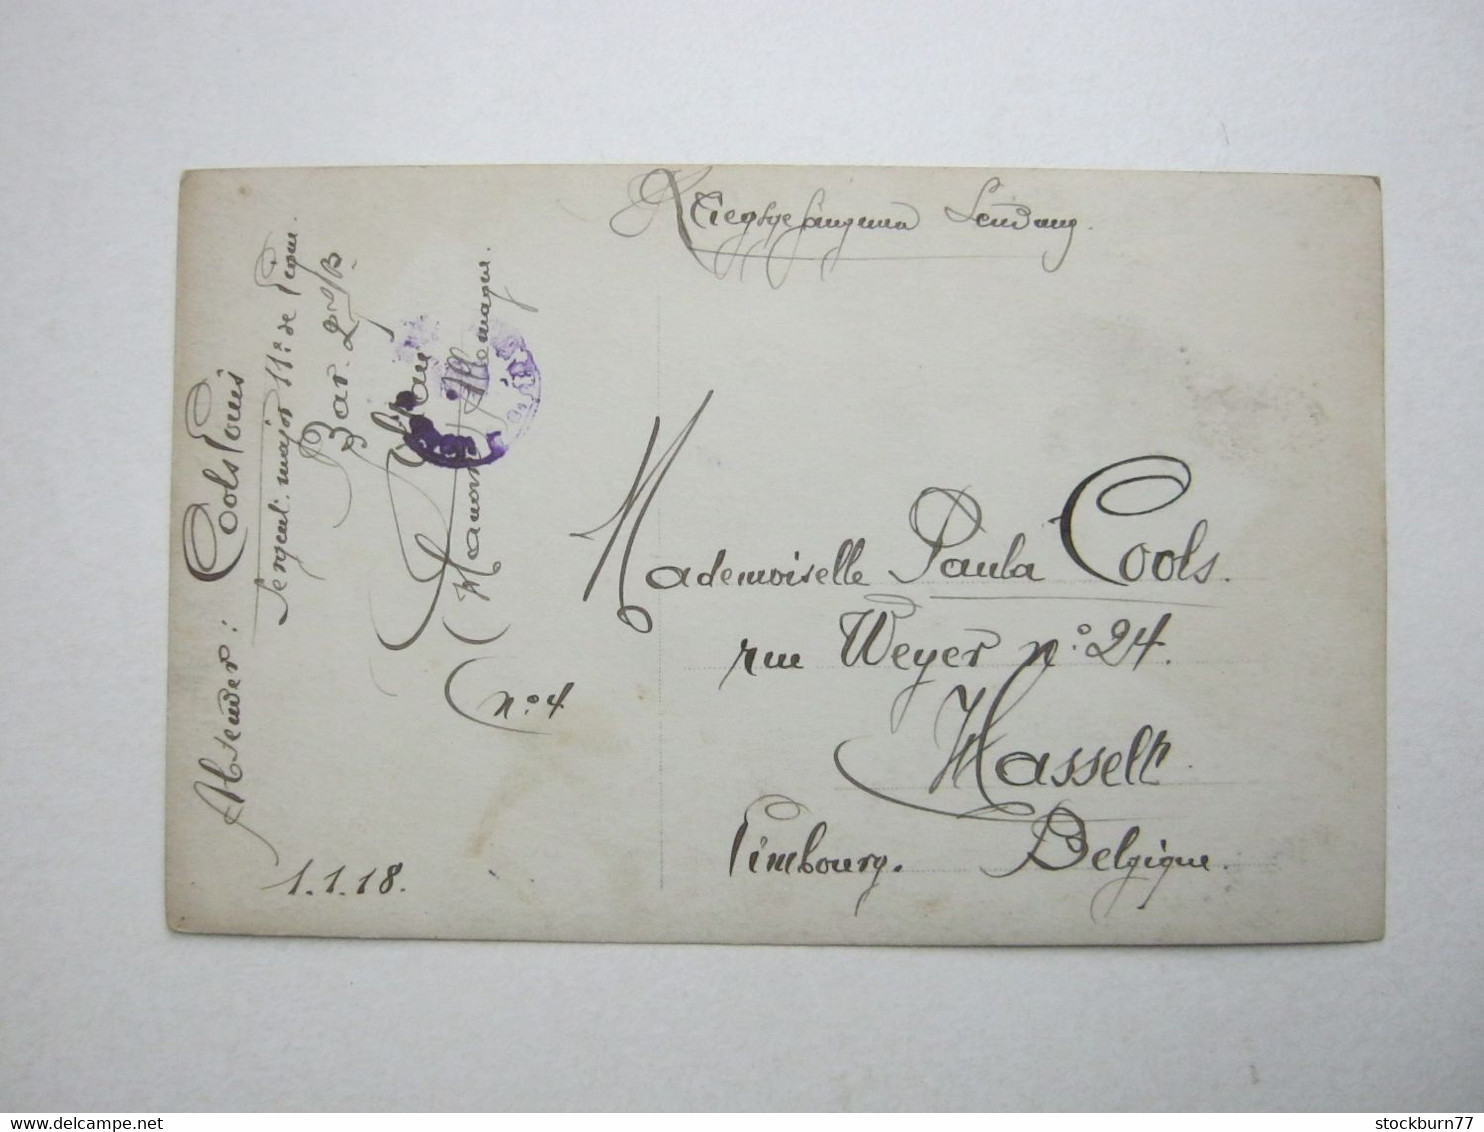 Kriegsgefangenen Sendung.
Absender: Cols Louis
Sergent major 11e de ligne
Bar. 27/B.
Soltau
(Hanovre) Allemagne.
n° 4
1.1.18.
Mademoiselle Paula Cools.
rue Weyer n° 24.
Hasselt
Limbourg. Belgique.
stockburn77